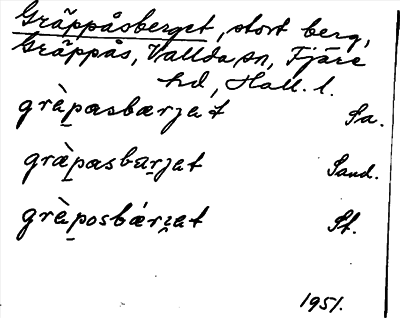 Gräppåsberget, stort berg,
Gräppås, Vallda sn, Fjäre
hd, Hall. l.
græ̀pasbærjat Sa.
græ̀pasbarjat Sand.
græ̀posbærjat St.
1951.